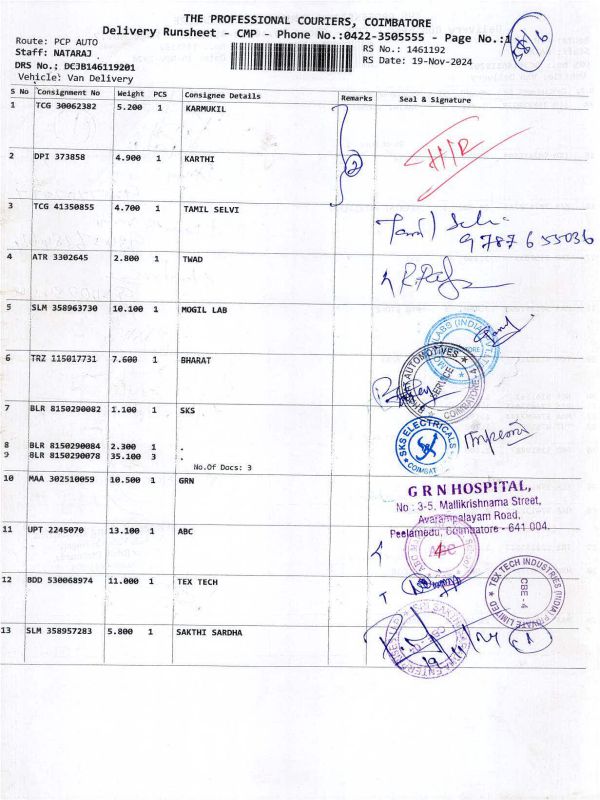 THE PROFESSIONAL COURIERS, COIMBATORE
Delivery Runsheet - CMP - Phone No.:0422-3505555 - Page No.:1
Route: PCP AUTO
Staff: NATARAJ
RS No.: 1461192
DRS No.: DCJB146119201
RS Date: 19-Nov-2024
Vehicle: Van Delivery
S No Consignment No Weight PCS Consignee Details Remarks Seal & Signature
1 TCG 30062382 5.200 1 KARMUKIL
H/R
2 DPI 373858 4.900 1 KARTHI
2
3 TCG 41350855 4.700 1 TAMIL SELVI
9787655036
4 ATR 3302645 2.800 1 TWAD
5 SLM 358963730 10.100 1 MOGIL LAB
6 TRZ 115017731 7.600 1 BHARAT
AUTOMOTIVES
SERVICE
COIMBATORE
7 BLR 8150290082 1.100 1 SKS
SKS ELECTRICALS
SKS
COIMBAT
8 BLR 8150290084 2.300 1 .
9 BLR 8150290078 35.100 3 .
No.Of Docs: 3
10 MAA 302510059 10.500 1 GRN
G R N HOSPITAL,
No : 3-5, Mallikrishnama Street,
Avarampalayam Road,
Peelamedu, Coimbatore - 641 004.
11 UPT 2245070 13.100 1 ABC
ABC
12 BDD 530068974 11.000 1 TEX TECH
TEX TECH INDUSTRIES (INDIA) PRIVATE LIMITED
CBE - 4
13 SLM 358957283 5.800 1 SAKTHI SARDHA
19/11/24